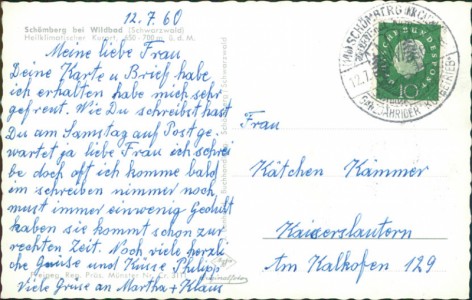 12.7.60
Schömberg bei Wildbad (Schwarzwald)
Heilklimatischer Kurort, 650-700 m ü. d. M.
Meine liebe Frau
Deine Karte u Brief habe
ich erhalten habe mich sehr
gefreut. Wie Du schreibst hast
Du am Samstag auf Post ge-
wartet ja liebe Frau ich schrei
be doch oft ich komme bald
em schreiben nimmer noch
must immer einwenig Gedult
haben sie kommt schon zur
rechten Zeit. Noch viele herzli
che Grüße und Küsse Philipp
Viele Grüse an Martha + Klaus
Schwarzwald
DEUTSCHE BUNDESPOST
10
12.7.
JÄHRIGER
Frau
Kätchen Kämmer
Kaiserslautern
Am Kalkofen 129